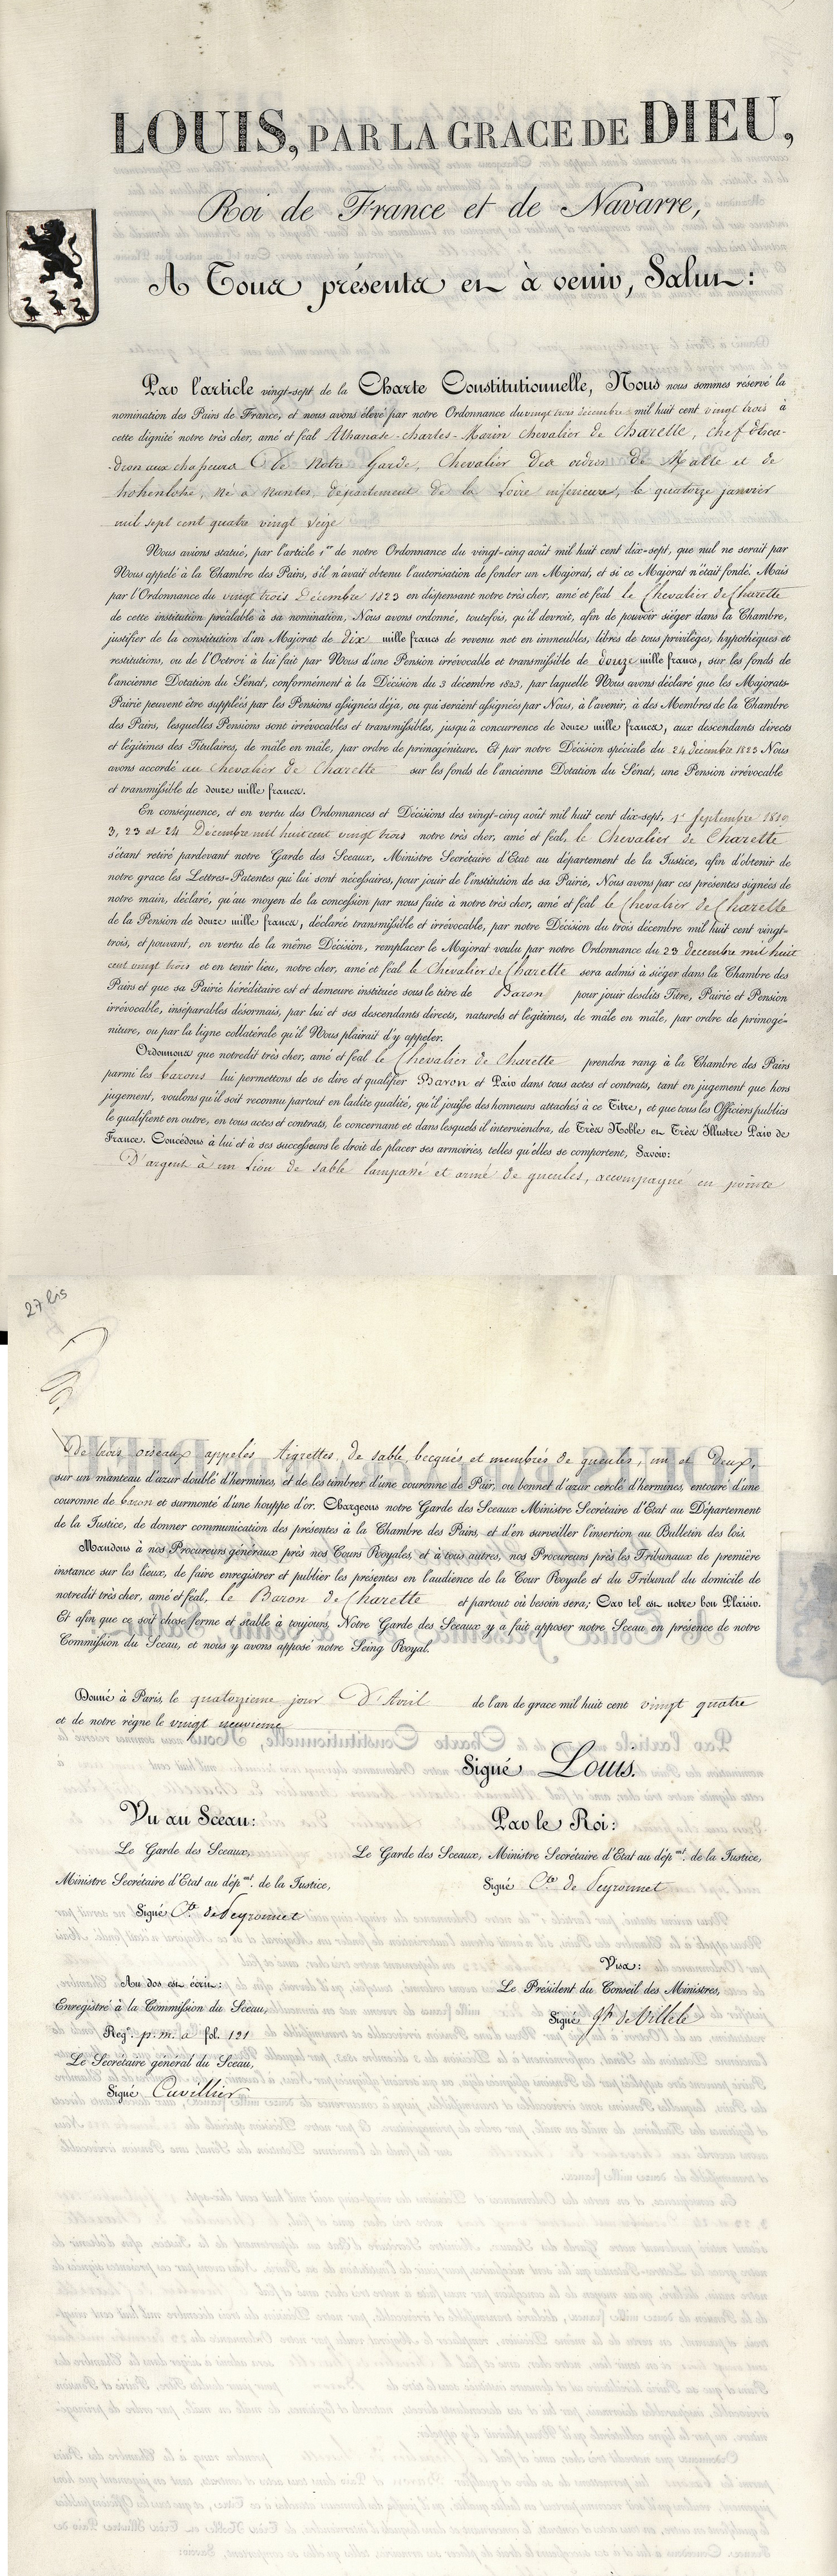 LOUIS, PAR LA GRACE DE DIEU,
Roi de France et de Navarre,
A Tous présents et à venir, Salut:
Par l'article vingt-sept de la Charte Constitutionnelle, Nous nous sommes réservé la
nomination des Pairs de France, et nous avons élevé par notre Ordonnance du vingt trois décembre mil huit cent vingt trois à
cette dignité notre très cher, amé et féal Athanase-charles-Marin Chevalier de Charette, chef d'esca-
-dron aux chasseurs de Notre Garde, Chevalier des ordres de Malte et de
hohenlohe, né à Nantes, département de la Loire inférieure, le quatorze janvier
mil sept cent quatre vingt seize
Nous avions statué, par l'article 1er de notre Ordonnance du vingt-cinq août mil huit cent dix-sept, que nul ne serait par
Nous appelé à la Chambre des Pairs, s'il n'avait obtenu l'autorisation de fonder un Majorat, et si ce Majorat n'était fondé. Mais
par l'Ordonnance du vingt trois Décembre 1823 en dispensant notre très cher, amé et féal le Chevalier de Charette
de cette institution préalable à sa nomination, Nous avons ordonné, toutefois, qu'il devroit, afin de pouvoir siéger dans la Chambre,
justifier de la constitution d'un Majorat de dix mille francs de revenu net en immeubles, libres de tous privilèges, hypothèques et
restitutions, ou de l'Octroi à lui fait par Nous d'une Pension irrévocable et transmissible de douze mille francs, sur les fonds de
l'ancienne Dotation du Sénat, conformément à la Décision du 3 décembre 1823, par laquelle Nous avons déclaré que les Majorats-
Pairie peuvent être suppléés par les Pensions assignées déjà, ou qui seraient assignées par Nous, à l'avenir, à des Membres de la Chambre
des Pairs, lesquelles Pensions sont irrévocables et transmissibles, jusqu'à concurrence de douze mille francs, aux descendants directs
et légitimes des Titulaires, de mâle en mâle, par ordre de primogéniture. Et par notre Décision spéciale du 24 décembre 1823 Nous
avons accordé au Chevalier de Charette sur les fonds de l'ancienne Dotation du Sénat, une Pension irrévocable
et transmissible de douze mille francs.
En conséquence, et en vertu des Ordonnances et Décisions des vingt-cinq août mil huit cent dix-sept, 1er Septembre 1819
3, 23 et 24 Décembre mil huit cent vingt trois notre très cher, amé et féal, le Chevalier de Charette
s'étant retiré pardevant notre Garde des Sceaux, Ministre Secrétaire d'Etat au département de la Justice, afin d'obtenir de
notre grace les Lettres-Patentes qui lui sont nécessaires, pour jouir de l'institution de sa Pairie, Nous avons par ces présentes signées de
notre main, déclaré, qu'au moyen de la concession par nous faite à notre très cher, amé et féal le Chevalier de Charette
de la Pension de douze mille francs, déclarée transmissible et irrévocable, par notre Décision du trois décembre mil huit cent vingt-
trois, et pouvant, en vertu de la même Décision, remplacer le Majorat voulu par notre Ordonnance du 23 decembre mil huit
cent vingt trois et en tenir lieu, notre cher, amé et féal le Chevalier de Charette sera admis à siéger dans la Chambre des
Pairs et que sa Pairie héréditaire est et demeure instituée sous le titre de Baron pour jouir desdits Titre, Pairie et Pension
irrévocable, inséparables désormais, par lui et ses descendants directs, naturels et légitimes, de mâle en mâle, par ordre de primogé-
niture, ou par la ligne collatérale qu'il Nous plairait d'y appeler.
Ordonnons que notredit très cher, amé et féal le Chevalier de Charette prendra rang à la Chambre des Pairs
parmi les barons lui permettons de se dire et qualifier Baron et Pair dans tous actes et contrats, tant en jugement que hors
jugement, voulons qu'il soit reconnu partout en ladite qualité, qu'il jouisse des honneurs attachés à ce Titre, et que tous les Officiers publics
le qualifient en outre, en tous actes et contrats, le concernant et dans lesquels il interviendra, de Très Noble et Très Illustre Pair de
France. Concédons à lui et à ses successeurs le droit de placer ses armoiries, telles qu'elles se comportent, Savoir:
D'argent à un Lion de sable lampassé et armé de gueules, accompagné en pointe
27 bis
de trois oiseaux appelés Aigrettes, de sable, becqués et membrés de gueules, un et Deux,
sur un manteau d'azur doublé d'hermines, et de les timbrer d'une couronne de Pair, ou bonnet d'azur cerclé d'hermines, entouré d'une
couronne de baron et surmonté d'une houppe d'or. Chargeons notre Garde des Sceaux Ministre Secrétaire d'Etat au Département
de la Justice, de donner communication des présentes à la Chambre des Pairs, et d'en surveiller l'insertion au Bulletin des lois.
Mandons à nos Procureurs généraux près nos Cours Royales, et à tous autres, nos Procureurs près les Tribunaux de première
instance sur les lieux, de faire enregistrer et publier les présentes en l'audience de la Cour Royale et du Tribunal du domicile de
notredit très cher, amé et féal, le Baron de Charette et partout où besoin sera; Car tel est notre bon Plaisir.
Et afin que ce soit chose ferme et stable à toujours, Notre Garde des Sceaux y a fait apposer notre Sceau, en présence de notre
Commission du Sceau, et nous y avons apposé notre Seing Royal.
Donné à Paris, le quatorzieme jour D'Avril de l'an de grace mil huit cent vingt quatre
et de notre règne le vingt neuvieme
Signé Louis.
Vu au Sceau:
Le Garde des Sceaux,
Ministre Secrétaire d'Etat au dépmt. de la Justice,
Signé Cte. de Peyronnet
Par le Roi:
Le Garde des Sceaux, Ministre Secrétaire d'Etat au dépmt. de la Justice,
Signé Cte de Peyronnet
Visa:
Le Président du Conseil des Ministres,
Signé Jh de Villele
Au dos est écrit:
Enregistré à la Commission du Sceau,
Regre. p. m. a fol. 121
Le Secrétaire général du Sceau,
Signé Cuvillier